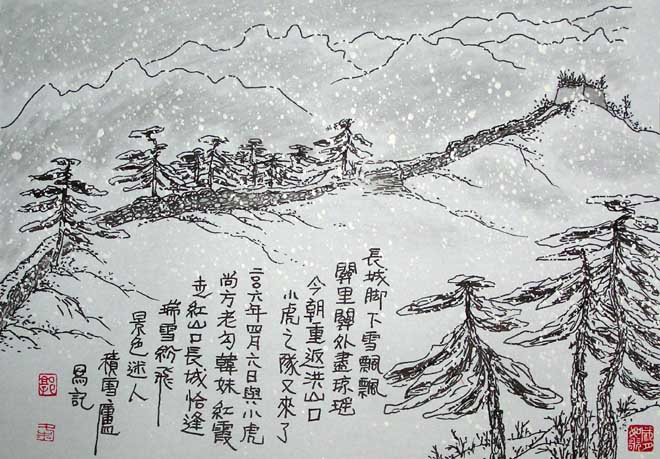 長城脚下雪飄飄
關里關外盡琉瑶
今朝重返洪山口
小虎之隊又來了
二〇〇六年四月六日與小虎
尚方老勾韓妹紅霞
走紅山口長城恰逢
瑞雪紛飛
景色迷人
積雪廬
易記